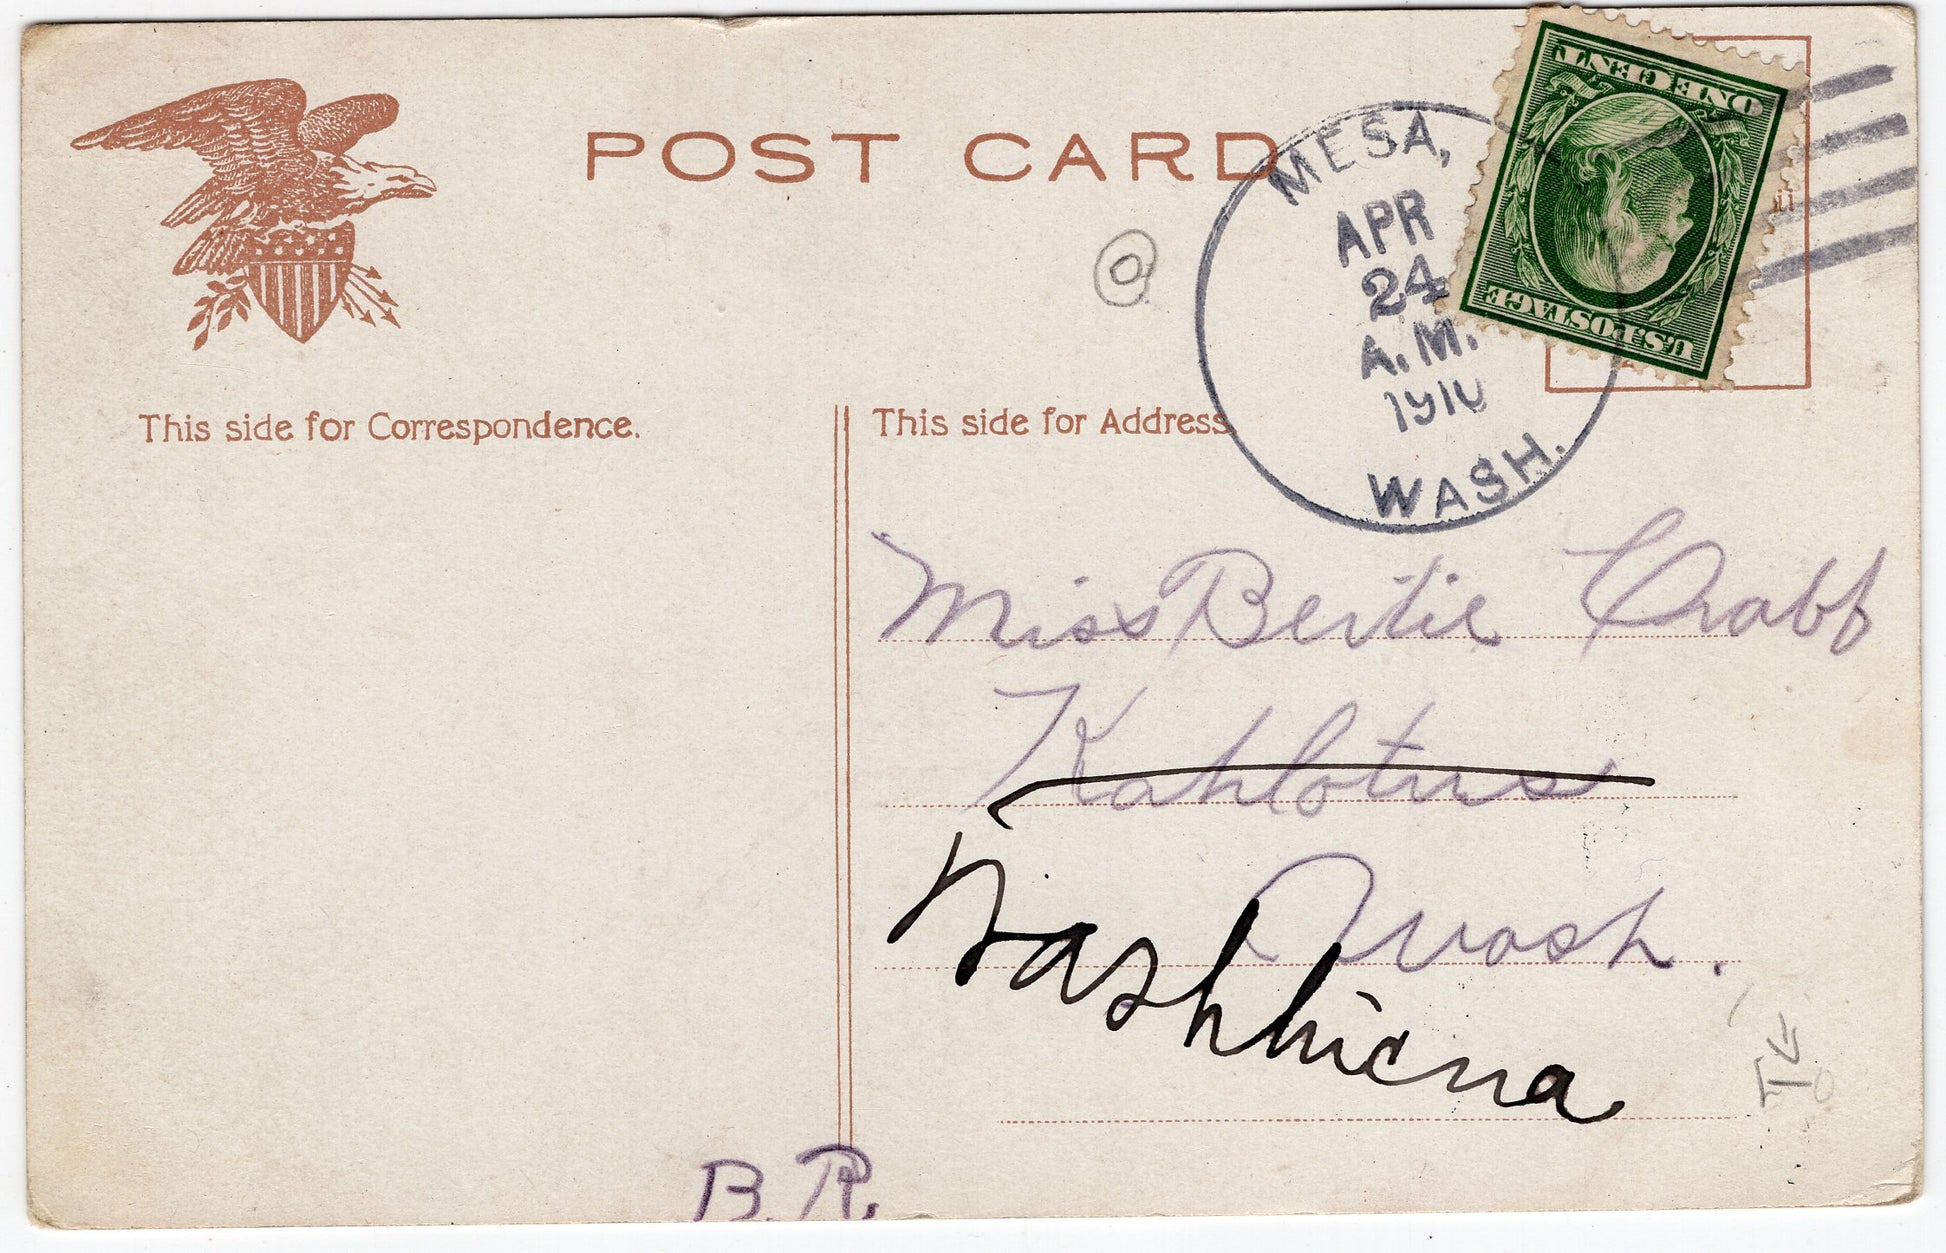 POST CARD
MESA,
APR
24
A.M.
1910
WASH.
ONE CENT
U.S. POSTAGE
This side for Correspondence.
This side for Address.
Miss Bertie Crabb
Kahlotus
Wash.
B.R.